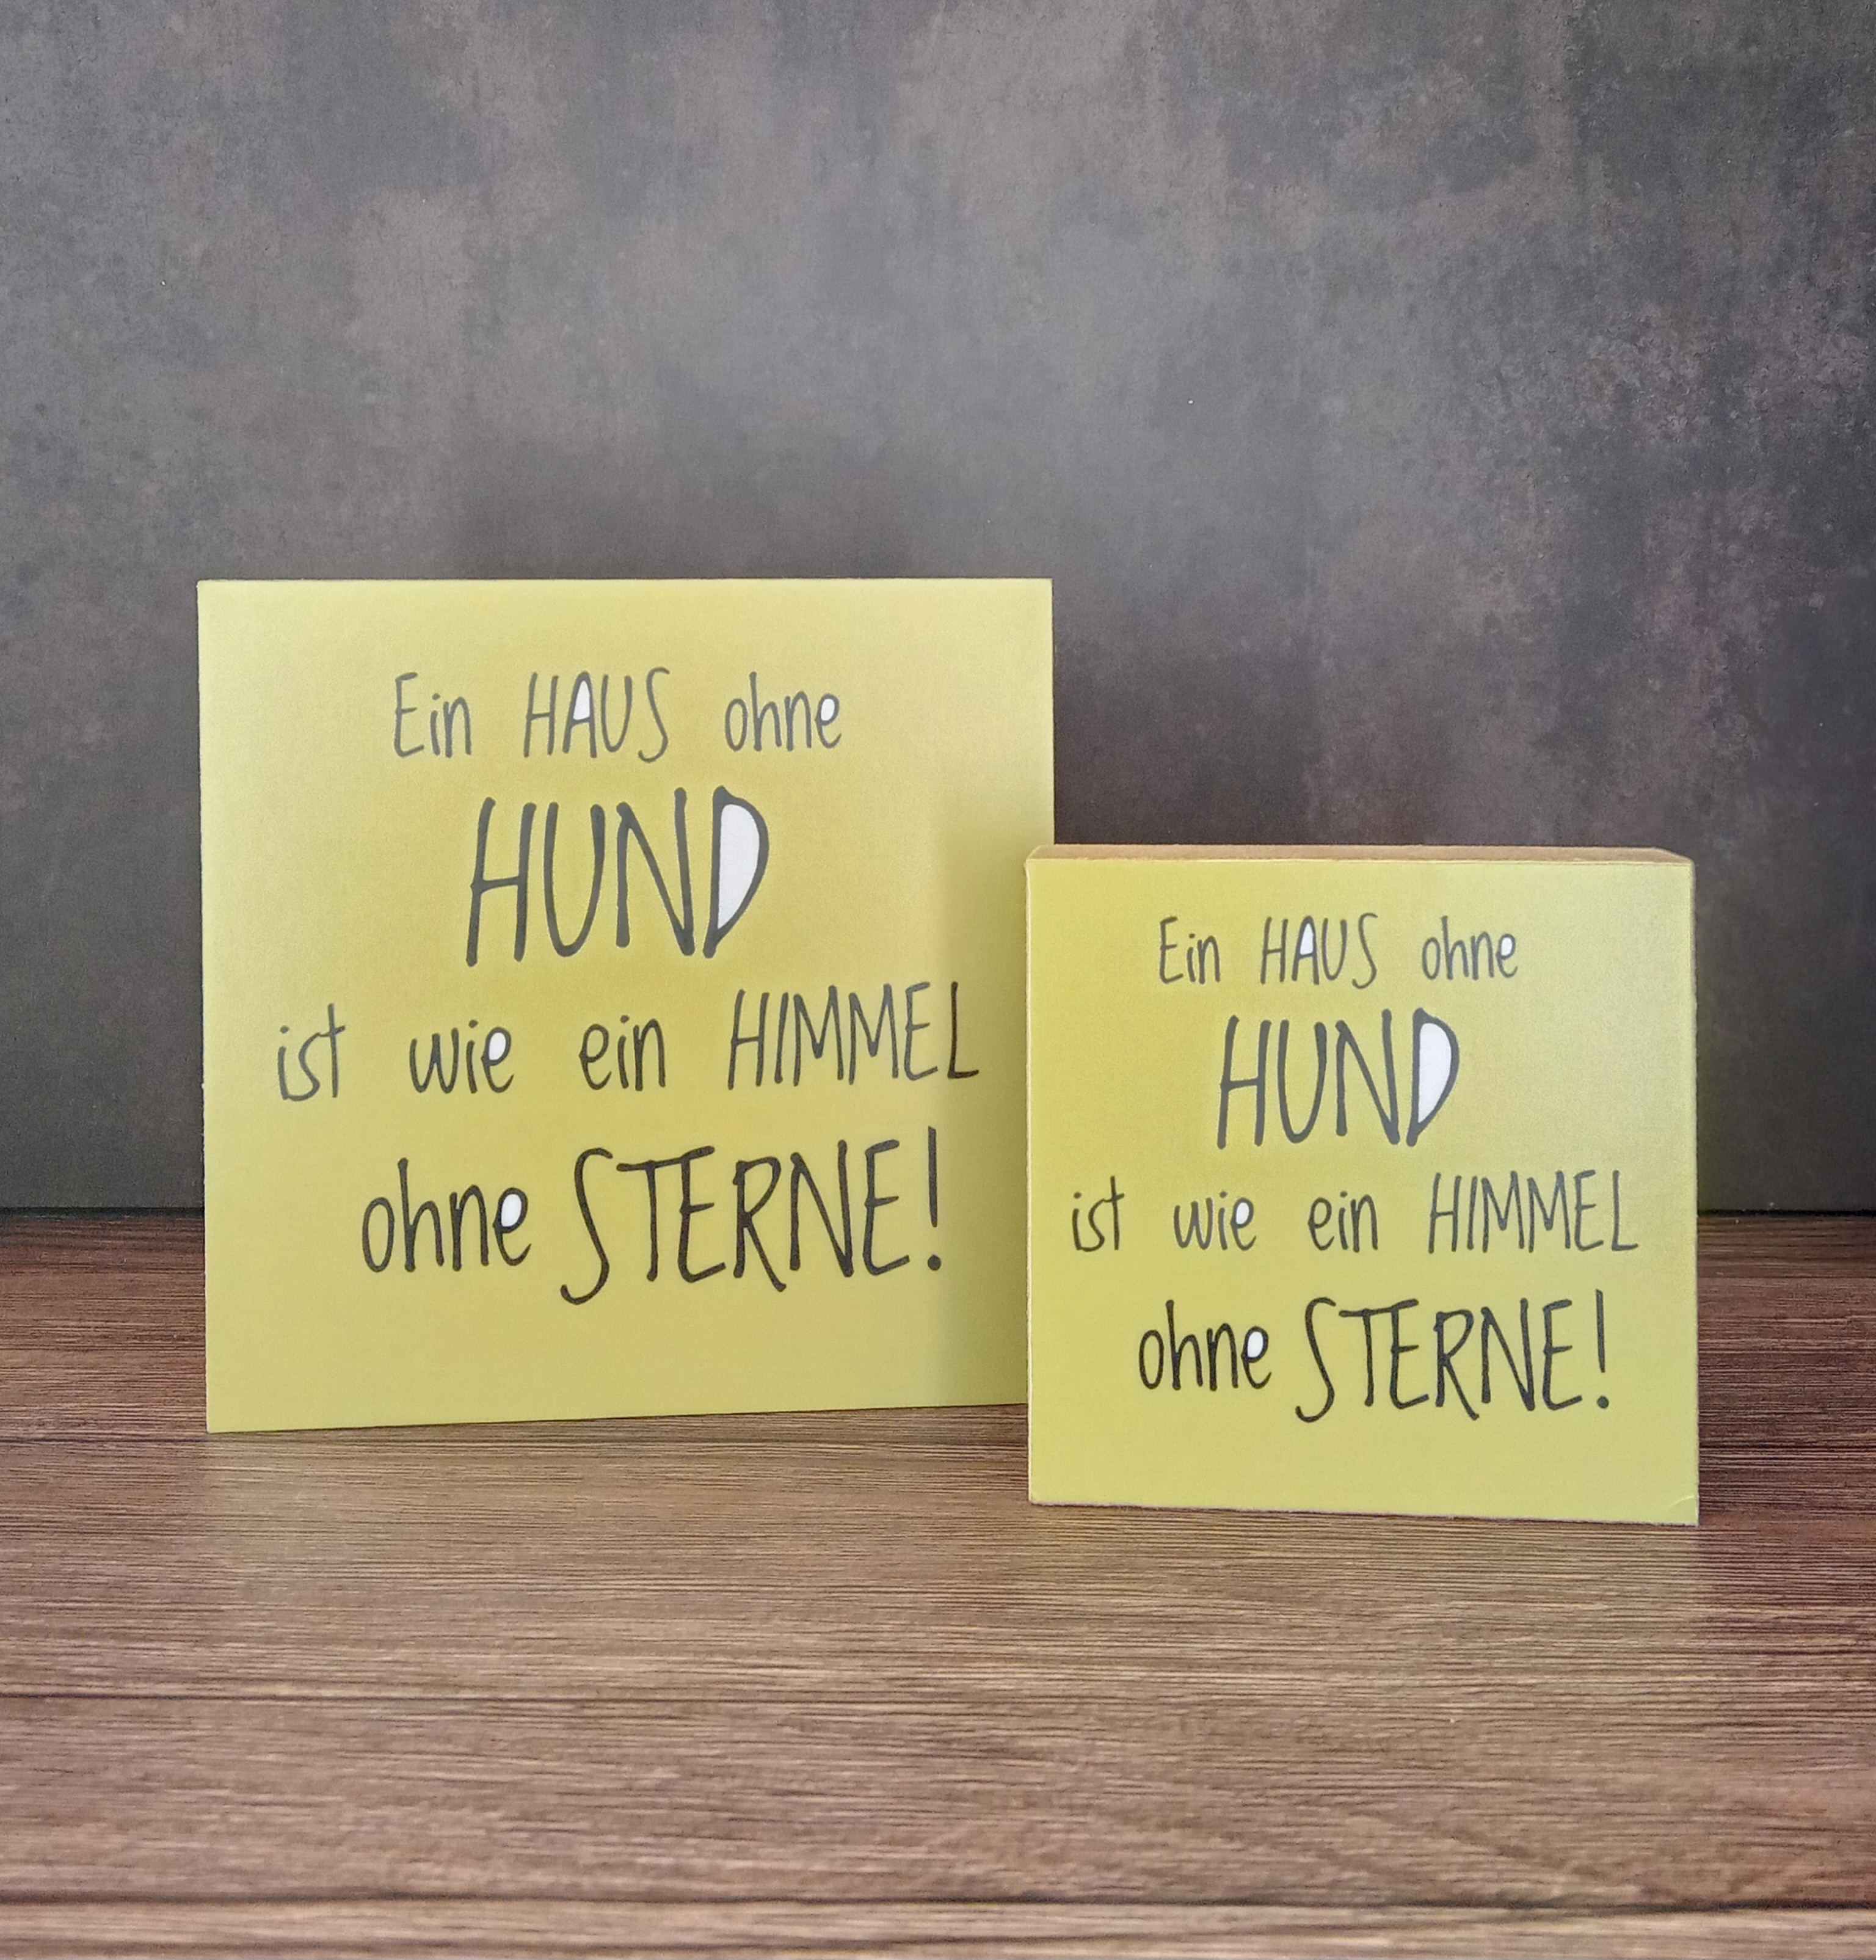 Ein HAUS ohne
HUND
ist wie ein HIMMEL
ohne STERNE!
Ein HAUS ohne
HUND
ist wie ein HIMMEL
ohne STERNE!